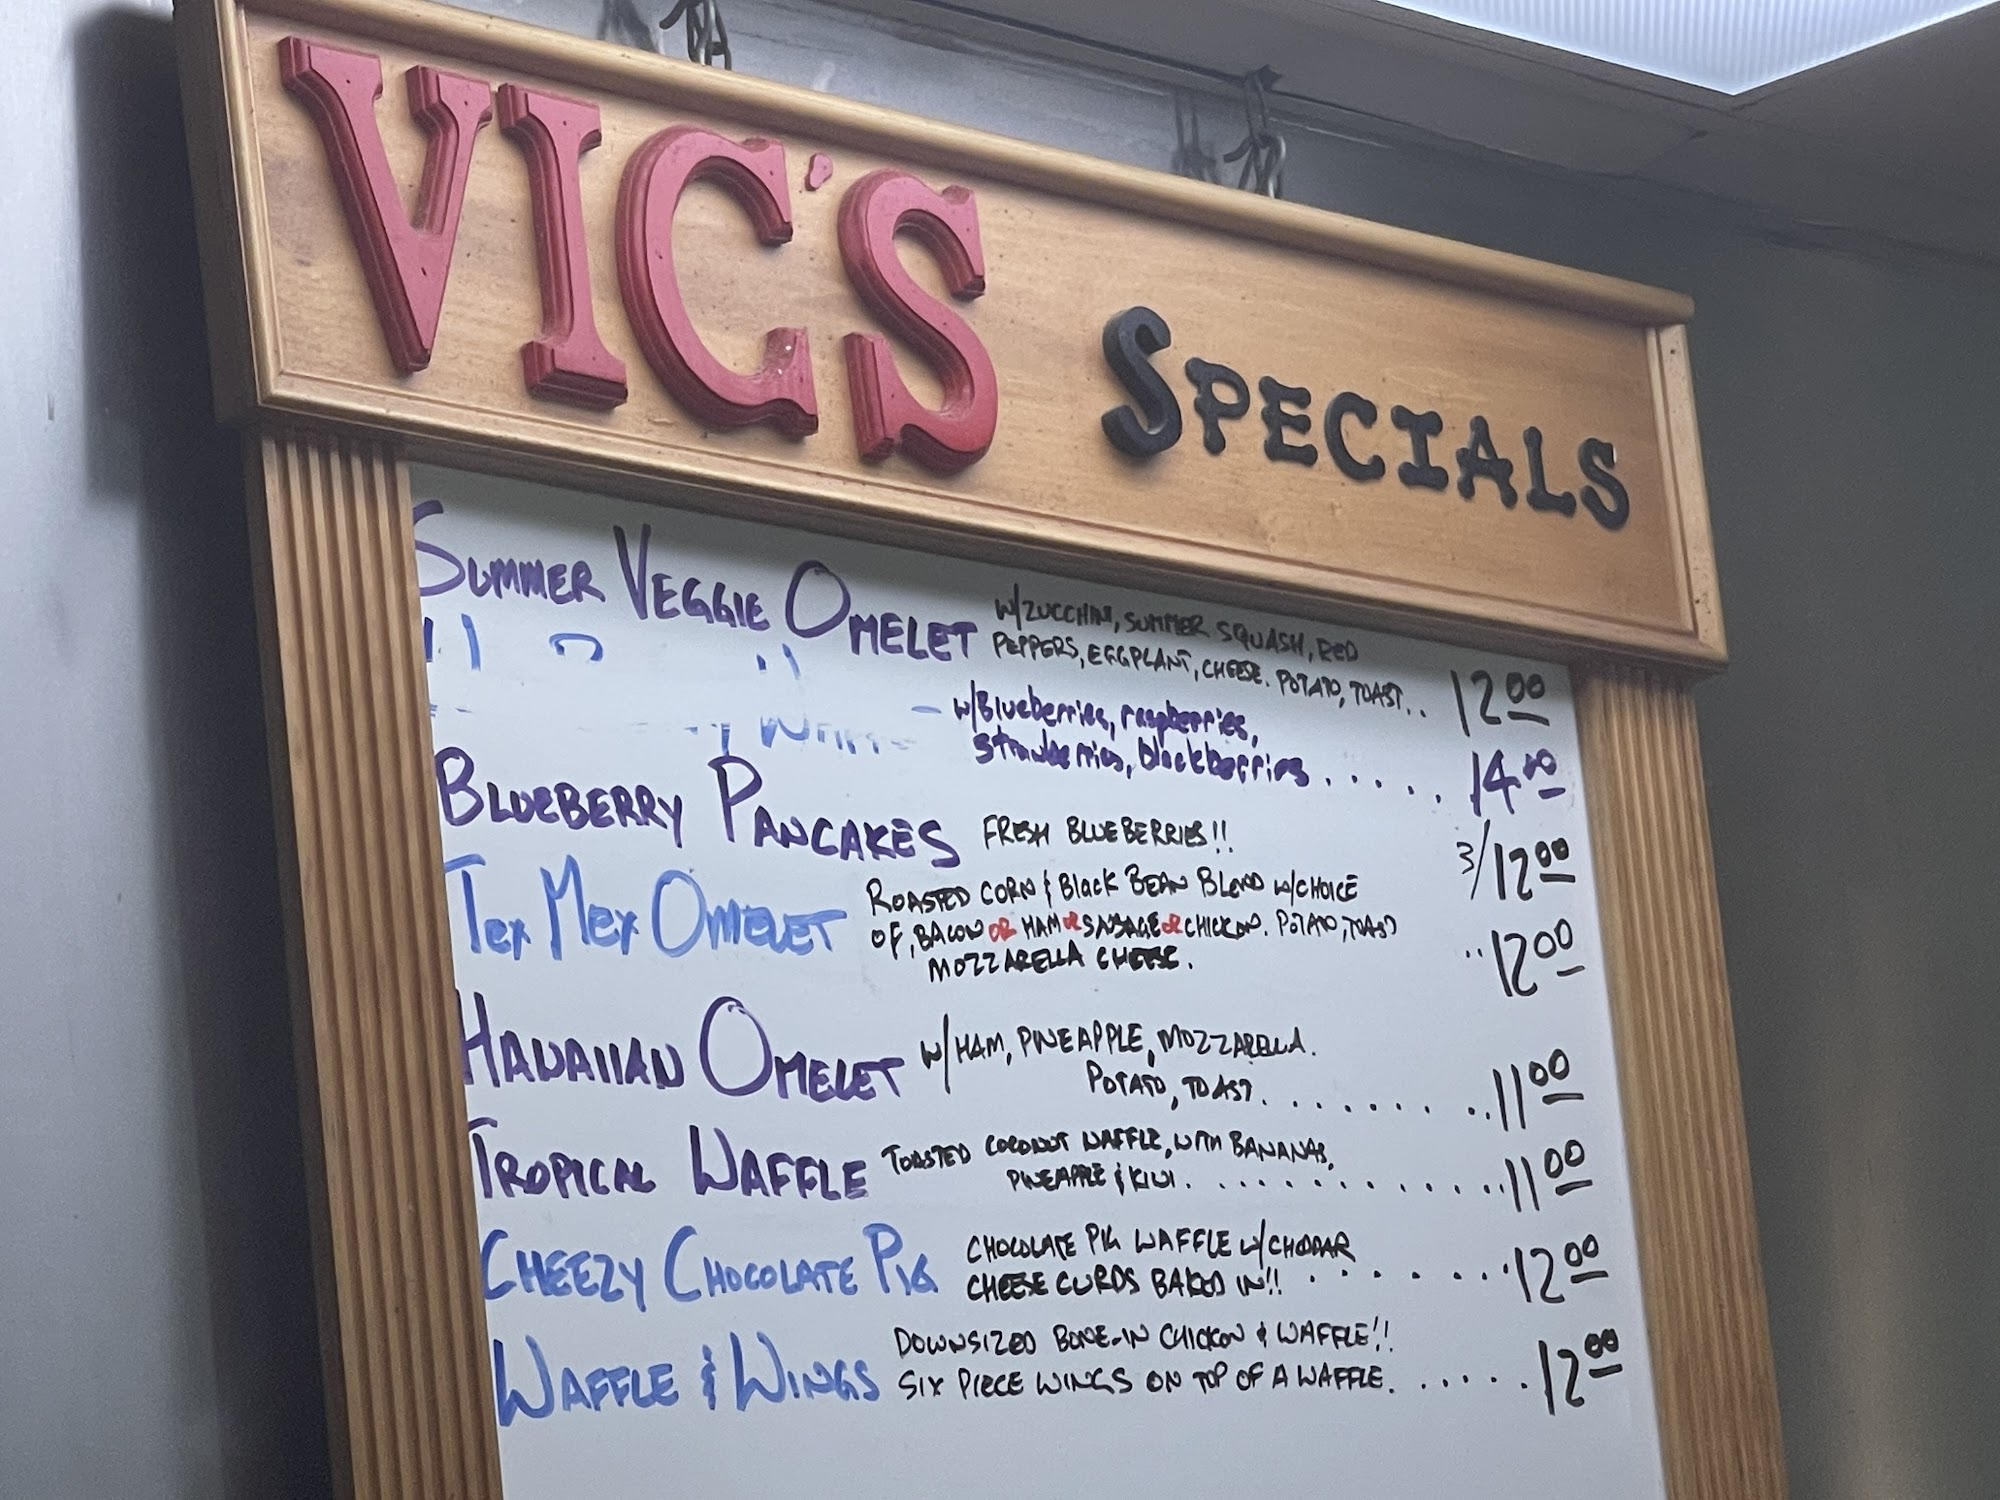 VIC'S SPECIALS
SUMMER VEGGIE OMELET W/ZUCCHINI, SUMMER SQUASH, RED
PEPPERS, EGGPLANT, CHEESE. POTATO, TOAST.. 12.00
w/Blueberries, raspberries,
strawberries, blackberries..... 14.00
BLUEBERRY PANCAKES FRESH BLUEBERRIES!! 3/12.00
TEX MEX OMELET ROASTED CORN & BLACK BEAN BLEND W/CHOICE
OF, BACON OR HAM OR SAUSAGE OR CHICKEN. POTATO, TOAST
MOZZARELLA CHEESE. ..12.00
HAWAIIAN OMELET W/HAM, PINEAPPLE, MOZZARELLA.
POTATO, TOAST.........11.00
TROPICAL WAFFLE TOASTED COCONUT WAFFLE, WITH BANANAS,
PINEAPPLE & KIWI.............11.00
CHEEZY CHOCOLATE PIG CHOCOLATE PIG WAFFLE W/CHEDDAR
CHEESE CURDS BAKED IN!!........12.00
WAFFLE & WINGS DOWNSIZED BONE-IN CHICKEN & WAFFLE!!
SIX PIECE WINGS ON TOP OF A WAFFLE.......12.00